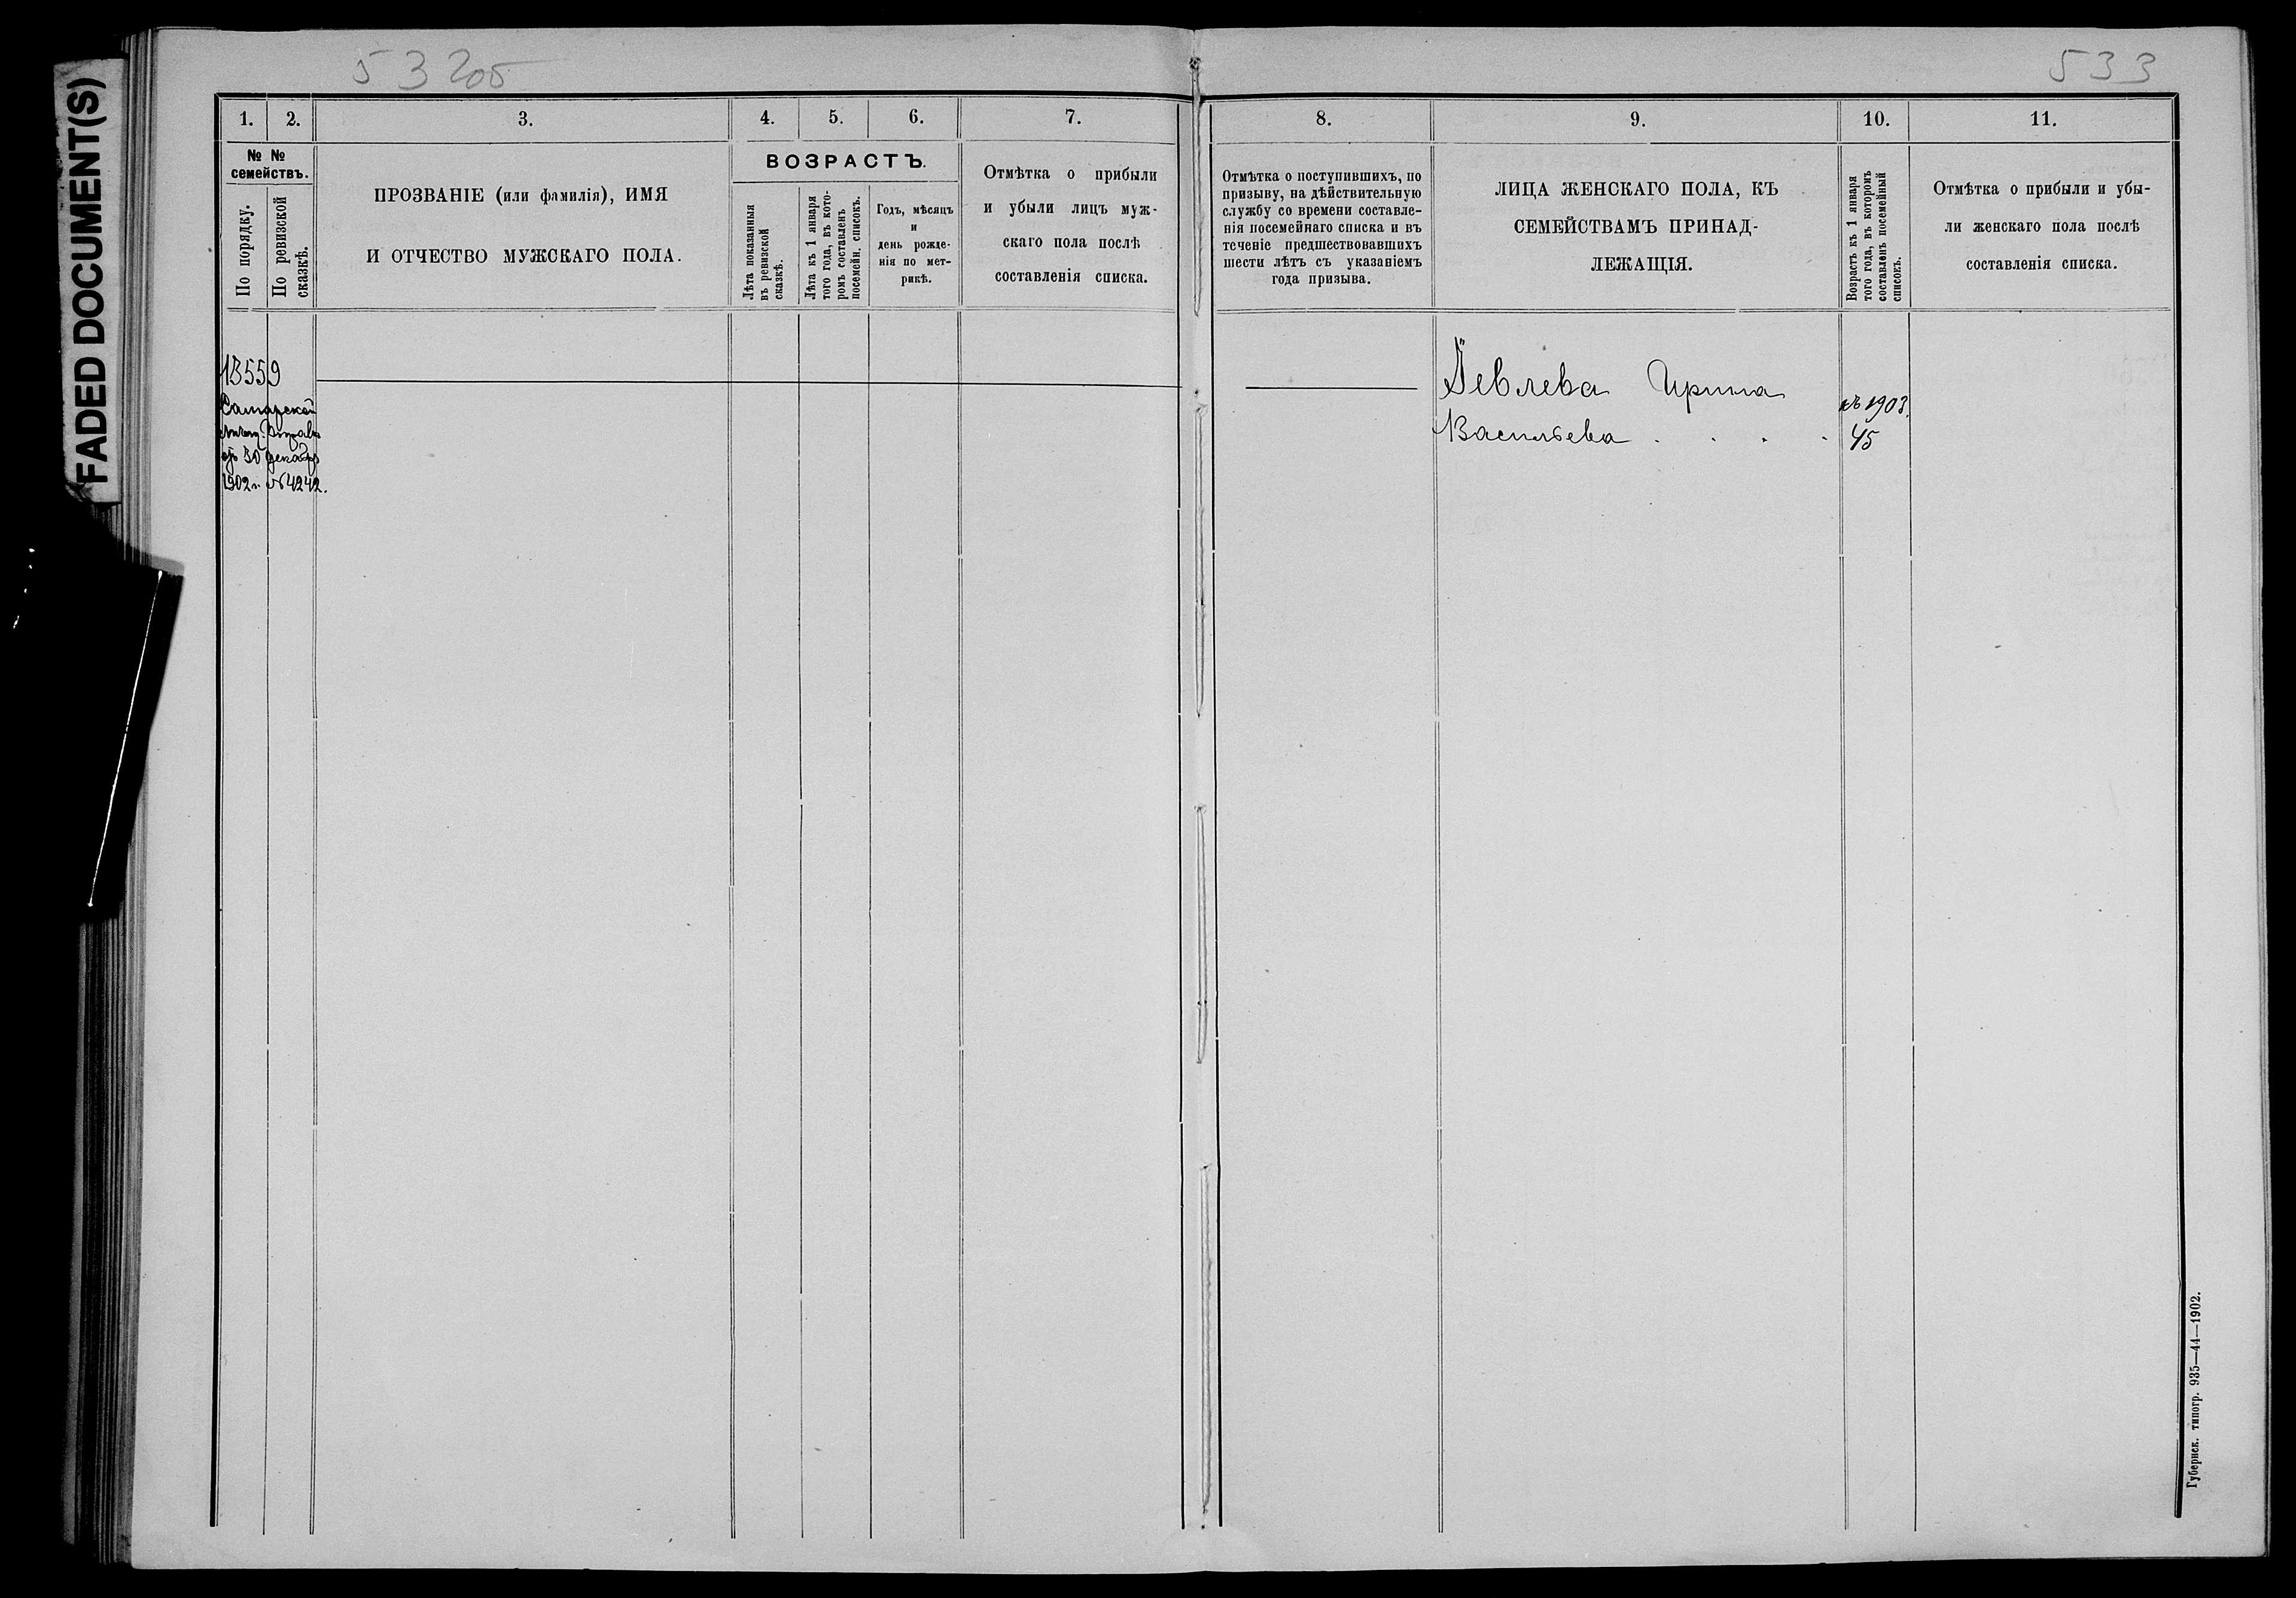 FADED DOCUMENT(S)
532об
533
1. 2. 3. 4. 5. 6. 7. 8. 9. 10. 11.
№ №
семействъ.
По порядку.
По ревизской
сказкѣ.
ПРОЗВАНІЕ (или фамилія), ИМЯ
И ОТЧЕСТВО МУЖСКАГО ПОЛА.
ВОЗРАСТЪ.
Лѣта показанныя
въ ревизской
сказкѣ.
Лѣта къ 1 января
того года, въ кото-
ромъ составленъ
посемейн. списокъ.
Годъ, мѣсяцъ
и
день рожде-
нія по мет-
рикѣ.
Отмѣтка о прибыли
и убыли лицъ муж-
скаго пола послѣ
составленія списка.
Отмѣтка о поступившихъ, по
призыву, на дѣйствительную
службу со времени составле-
нія посемейнаго списка и въ
теченіе предшествовавшихъ
шести лѣтъ съ указаніемъ
года призыва.
ЛИЦА ЖЕНСКАГО ПОЛА, КЪ
СЕМЕЙСТВАМЪ ПРИНАД-
ЛЕЖАЩІЯ.
Возрастъ къ 1 января
того года, въ которомъ
составленъ посемейный
списокъ.
Отмѣтка о прибыли и убы-
ли женскаго пола послѣ
составленія списка.
13559
Самарской
отъ 30 декабр
1902 г. № 4242.
Іевлева Ирина
Васильева . . . .
къ 1903.
45
Губернск. типогр. 935—44—1902.